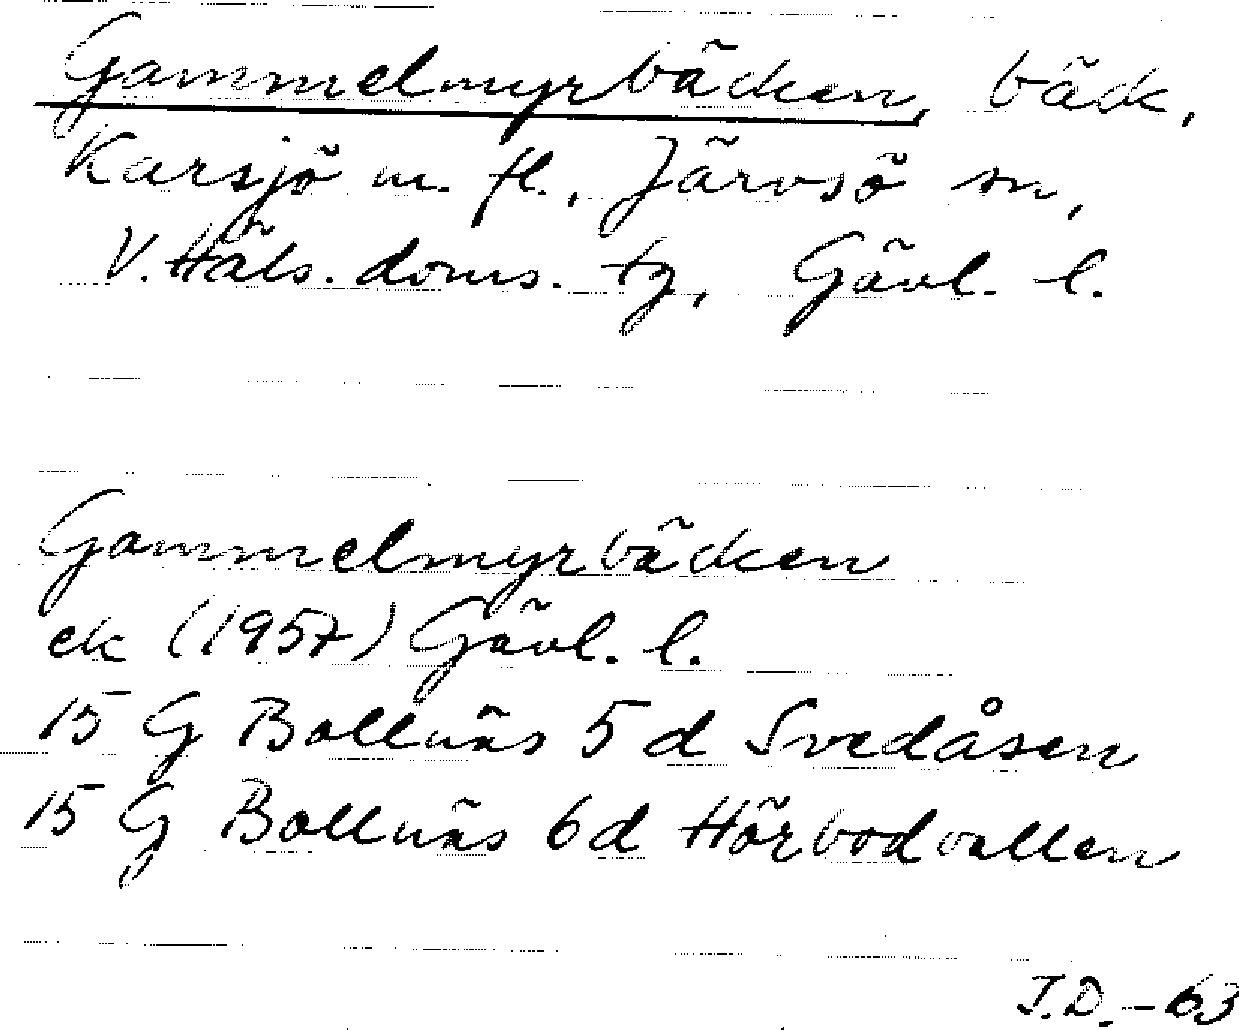 Gammelmyrbäcken, bäck,
Karsjö m. fl., Järvsö sn,
V. Häls. doms. tg, Gävl. l.
Gammelmyrbäcken
ek (1957) Gävl. l.
15 G Bollnäs 5 d Svedåsen
15 G Bollnäs 6d Hörbodvallen
I.D. - 63